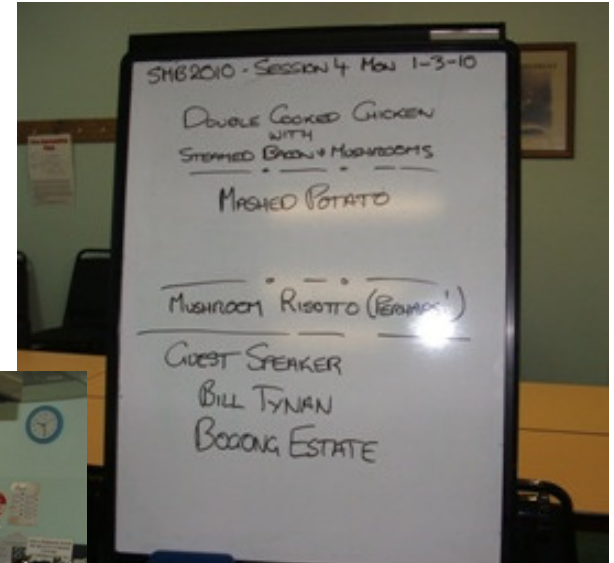 SMB2010 - SESSION 4 MON 1-3-10
DOUBLE COOKED CHICKEN
WITH
STEAMED BACON + MUSHROOMS
MASHED POTATO
MUSHROOM RISOTTO (PERHAPS!)
GUEST SPEAKER
BILL TYNAN
BOGONG ESTATE